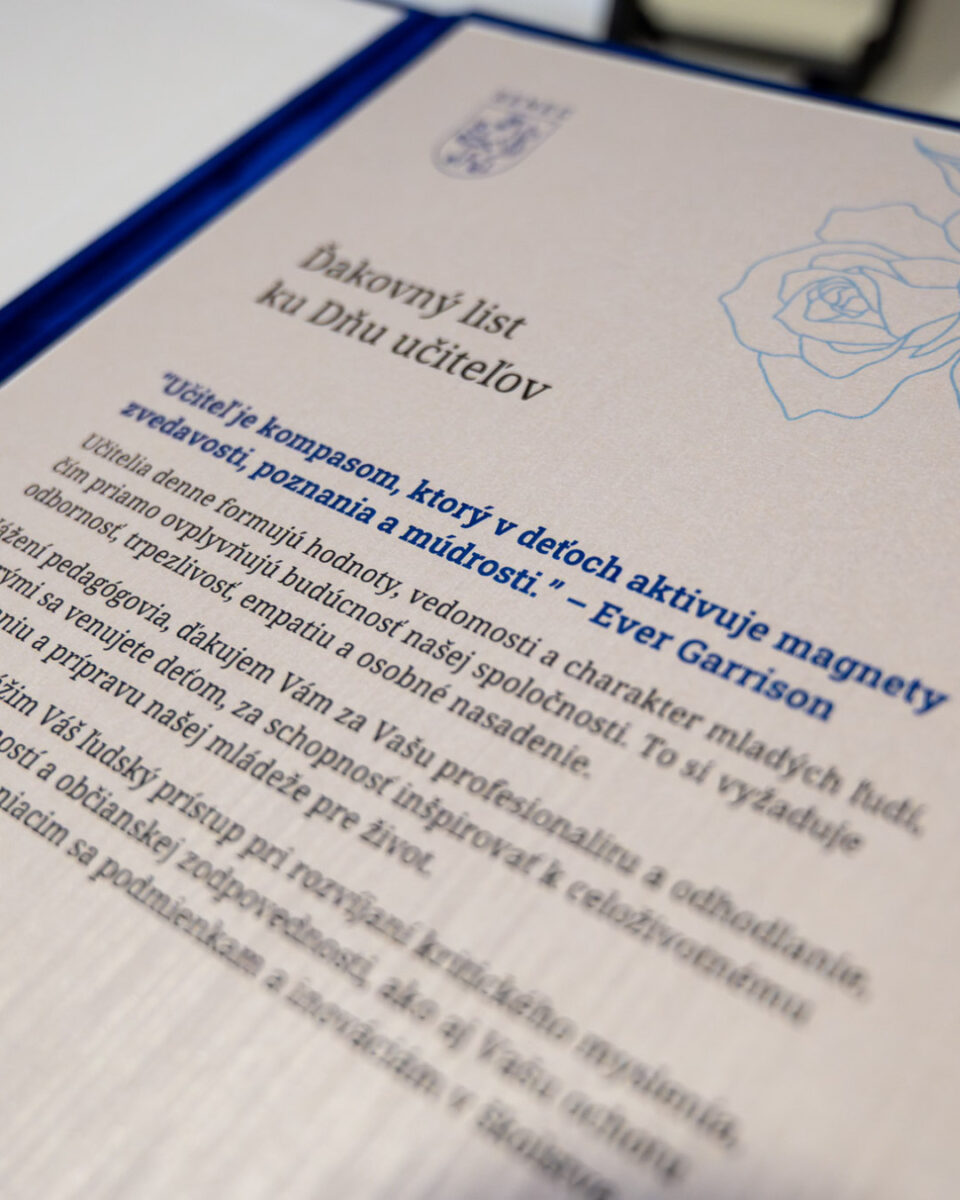 Ďakovný list
ku Dňu učiteľov
"Učiteľ je kompasom, ktorý v deťoch aktivuje magnety
zvedavosti, poznania a múdrosti." – Ever Garrison
Učitelia denne formujú hodnoty, vedomosti a charakter mladých ľudí,
čím priamo ovplyvňujú budúcnosť našej spoločnosti. To si vyžaduje
odbornosť, trpezlivosť, empatiu a osobné nasadenie.
pedagógovia, ďakujem Vám za Vašu profesionalitu a odhodlanie,
sa venujete deťom, za schopnosť inšpirovať k celoživotnému
a prípravu našej mládeže pre život.
Váš ľudský prístup pri rozvíjaní kritického myslenia,
a občianskej zodpovednosti, ako aj Vašu ochotu
sa podmienkam a inováciám v